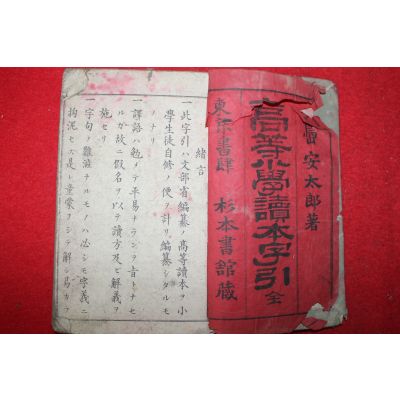 安太郎著
高等小學讀本字引 全
東京書肆 杉本書館藏
緒言
一此字引ハ文部省編纂ノ高等讀本ヲ小
學生徒自修ノ便ヲ計リ編纂シタルモ
ノナリ
一譯語ハ勉メテ平易ナランヲ旨トナセ
ルガ故ニ假名ヲ以テ讀方及ビ解義ヲ
施セリ
一字句ノ難澁ナルモノハ必シモ字義ニ
拘泥セス是レ童蒙ヲシテ解シ易カラ